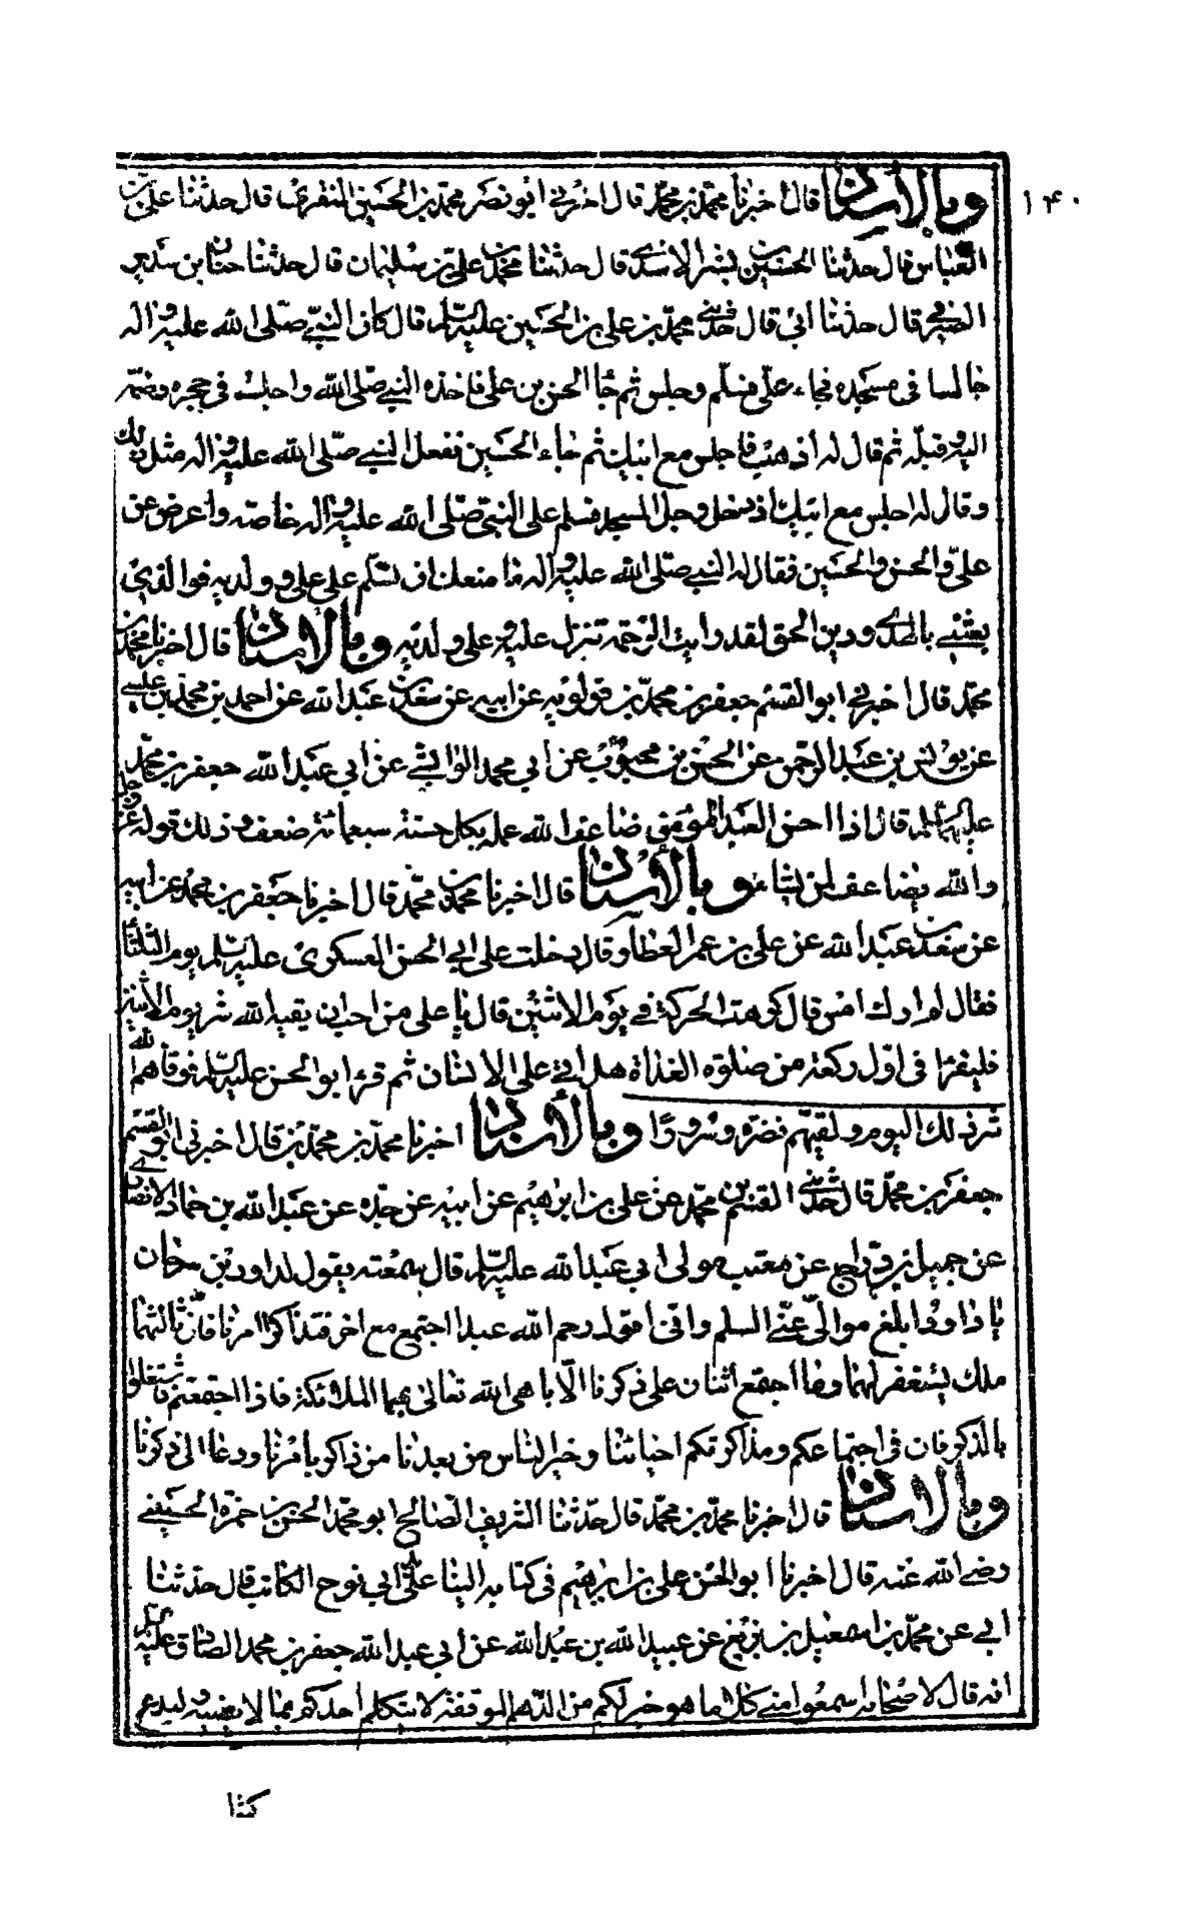 ١٤٠
وبالاسناد قال اخبرنا محمد بن محمد قال اخبرني ابو نصر محمد بن الحسين المقري قال حدثنا علي بن
العباس قال حدثنا الحسين بن بشر الاسدي قال حدثنا محمد بن علي بن سليمان قال حدثنا حنان بن سدير
الصيرفي قال حدثنا ابي قال حدثني محمد بن علي بن الحسين عليه السلم قال كان النبي صلى الله عليه واله
جالسا في مسجده فجاء علي فسلم وجلس ثم جاء الحسن بن علي فاخذه النبي صلى الله واجلسه في حجره وضمه
اليه وقبله ثم قال له اذهب فاجلس مع ابيك ثم جاء الحسين ففعل النبي صلى الله عليه واله مثل ذلك
وقال له اجلس مع ابيك اذ دخل رجل المسجد فسلم على النبي صلى الله عليه واله خاصة واعرض عن
علي والحسن والحسين فقال له النبي صلى الله عليه واله ما منعك ان تسلم على علي وولديه فوالذي
بعثني بالهدى ودين الحق لقد رايت الرحمة تنزل عليه وعلى ولديه وبالاسناد قال اخبرنا محمد بن
محمد قال اخبرني ابو القسم جعفر بن محمد بن قولويه عن ابيه عن سعد بن عبد الله عن احمد بن محمد بن عيسى
عن يونس بن عبد الرحمن عن الحسن بن محبوب عن ابي محمد الوابشي عن ابي عبد الله جعفر بن محمد
عليهما السلم قال اذا احسن العبد المؤمن ضاعف الله عمله بكل حسنة سبعمائة ضعف وذلك قوله عز وجل
والله يضاعف لمن يشاء وبالاسناد قال اخبرنا محمد بن محمد قال اخبرنا جعفر بن محمد عن ابيه
عن سعد بن عبد الله عن علي بن عمر العطار قال دخلت على ابي الحسن العسكري عليه السلم يوم الثلثا
فقال لم ارك امس قال كرهت الحركة في يوم الاثنين قال يا علي من احب ان يقيه الله شر يوم الاثنين
فليقرا في اول ركعة من صلوة الغداة هل اتى على الانسان ثم قرء ابو الحسن عليه السلم فوقاهم الله
شر ذلك اليوم ولقيهم نضرة وسرورا وبالاسناد اخبرنا محمد بن محمد قال اخبرني ابو القسم
جعفر بن محمد قال حدثني القسم بن محمد عن علي بن ابراهيم عن ابيه عن جده عن عبد الله بن حماد الانصاري
عن جميل بن دراج عن معتب مولى ابي عبد الله عليه السلم قال سمعته يقول لداود بن سرحان
يا داود ابلغ موالي عني السلم واني اقول رحم الله عبدا اجتمع مع اخر فتذاكرا امرنا فان ثالثهما
ملك يستغفر لهما وما اجتمع اثنان على ذكرنا الا باهى الله تعالى بهما الملائكة فاذا اجتمعتم فاشتغلوا
بالذكر فان في اجتماعكم ومذاكرتكم احيائنا وخير الناس من بعدنا من ذاكر بامرنا ودعا الى ذكرنا
وبالاسناد قال اخبرنا محمد بن محمد قال حدثنا الشريف الصالح ابو محمد الحسن بن حمزة الحسيني
رضي الله عنه قال اخبرنا ابو الحسن علي بن ابراهيم في كتابه الينا على ابي نوح الكاتب قال حدثنا
ابي عن محمد بن اسمعيل بن بزيع عن عبيد الله بن عبد الله عن ابي عبد الله جعفر بن محمد الصادق عليه السلم
انه قال لاصحابه اسمعوا مني كلاما هو خير لكم من الدهم الموقفة لا يتكلم احدكم بما لا يعنيه وليدع
كثيرا